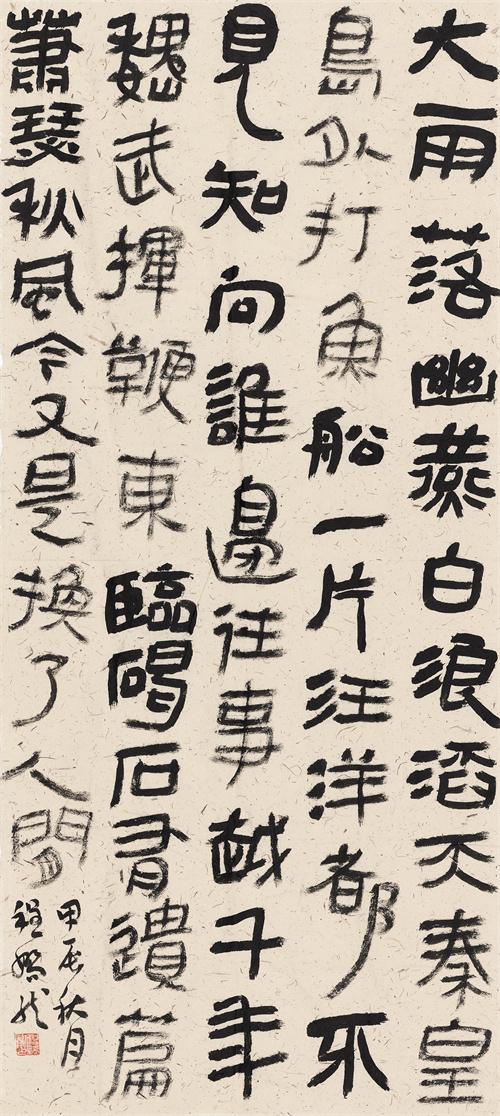 大雨落幽燕白浪滔天秦皇
島外打魚船一片汪洋都不
見知向誰邊往事越千年
魏武揮鞭東臨碣石有遺篇
蕭瑟秋風今又是換了人間
甲辰秋月
程